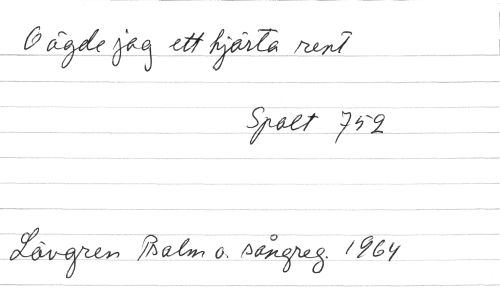 O ägde jag ett hjärta rent
Spalt 752
Lövgren Psalm o. sångreg. 1964